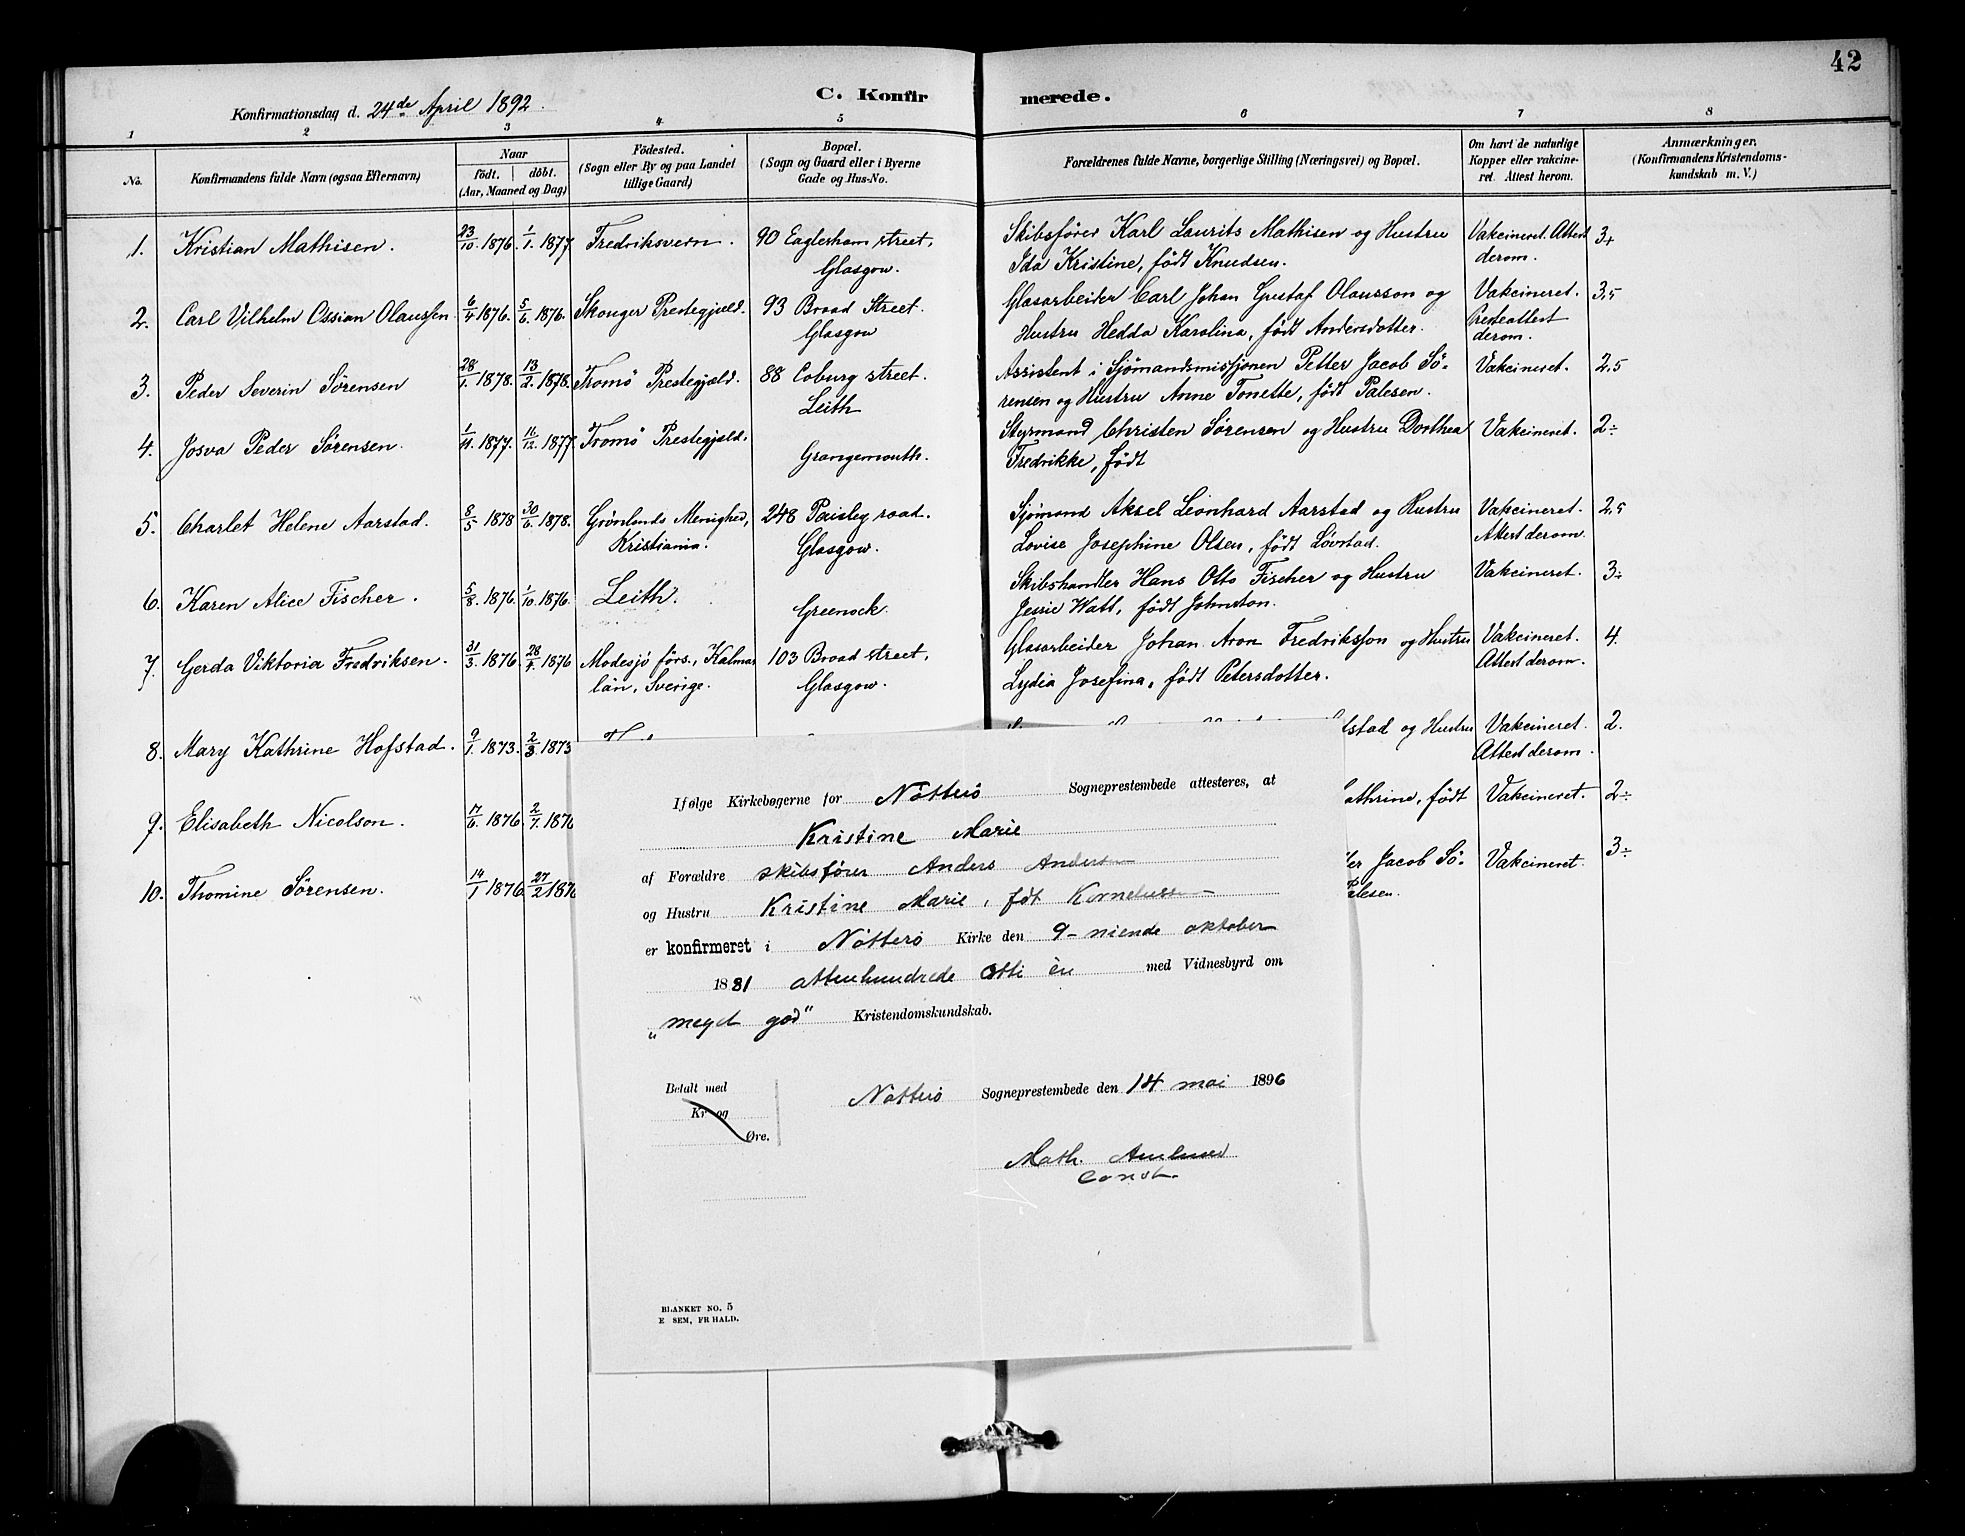 42
C. Konfirmerede.
Konfirmationsdag d. 24de April 1892.
1 2 3 4 5 6 7 8
No. Konfirmandens fulde Navn (ogsaa Efternavn) Naar født. døbt. (Aar, Maaned og Dag) Födested. (Sogn eller By og paa Landet tillige Gaard) Bopæl. (Sogn og Gaard eller i Byerne Gade og Hus-No. Forældrenes fulde Navne, borgerlige Stilling (Næringsvei) og Bopæl. Om havt de naturlige Kopper eller vakcineret. Attest herom. Anmærkninger. (Konfirmandens Kristendomskundskab m. V.)
1. Kristian Mathisen. 23/10. 1876. 1/1. 1877. Fredriksvern. 90 Eaglerham street, Skibsfører Karl Laurits Mathisen og Hustru Vakcineret. Attest 3+
Glasgow. Ida Kristine, født Knudsen. derom.
2. Carl Vilhelm Ossian Olaussen 6/4 1876. 5/6. 1876. Skouger Prestegjæld. 93 Broad Street. Glasarbeider Carl Johan Gustaf Olausson og Vakcineret. 3,5
Glasgow Hustru Hedda Karolina, født Andersdotter. Presteattest
derom.
3. Peder Severin Sørensen 28/1. 1878. 13/2. 1878. Tromö Prestegjæld. 88 Coburg street. Assistent i Sjömandsmissjonen Petter Jacob Sö- Vakcineret. 2,5
Leith rensen og Hustru Anne Tonette, født Palesen.
4. Josva Peder Sørensen. 1/11. 1877. 16/12. 1877 Tromö Prestegjæld. Styrmand Christen Sørensen og Hustru Dorthea Vakcineret. 2÷
Grangemouth. Fredrikke, født
5. Charlet Helene Aarstad. 8/5 1878 30/6. 1878. Grønlands Menighed, 248 Paisley road. Sjømand Aksel Leonhard Aarstad og Hustru Vakcineret. 2,5
Kristiania. Glasgow. Lovise Josephine Olsen, født Løvstad. Attest derom.
6. Karen Alice Fischer. 5/8. 1876. 1/10. 1876. Leith. Greenock Skibshandler Hans Otto Fischer og Hustru Vakcineret. 3÷
Jessie Watt, født Johnston.
7. Gerda Viktoria Fredriksen. 31/3. 1876. 28/4. 1876 Modesjö förs., Kalmar 103 Broad street, Glasarbeider Johan Aron Fredriksson og Hustru Vakcineret. 4.
län, Sverige. Glasgow. Lydia Josefina, født Petersdotter. Attest derom.
8. Mary Kathrine Hofstad. 9/1. 1873. 2/3 1873 stad og Hustru Vakcineret. 2.
Attest derom.
9. Elisabeth Nicolson. 17/6. 1876 2/7. 1876 athrine, født Vakcineret. 2÷
10. Thomine Sørensen. 14/1 1876 27/2 1876 er Jacob Sö- Vakcineret. 3÷
Palesen.
Ifølge Kirkebøgerne for Nötterö Sogneprestembede attesteres, at
Kristine Marie
af Forældre skibsfører Anders Andersen
og Hustru Kristine Marie, fdt Kornelius
er konfirmeret i Nötterö Kirke den 9- niende oktober
1881 attenhundrede otti èn med Vidnesbyrd om
„meget god" Kristendomskundskab.
Betalt med
Kr og
Øre.
Nötterö Sogneprestembede den 14 mai 1896
Math.
const.
BLANKET NO. 5
E SEM, FR HALD.